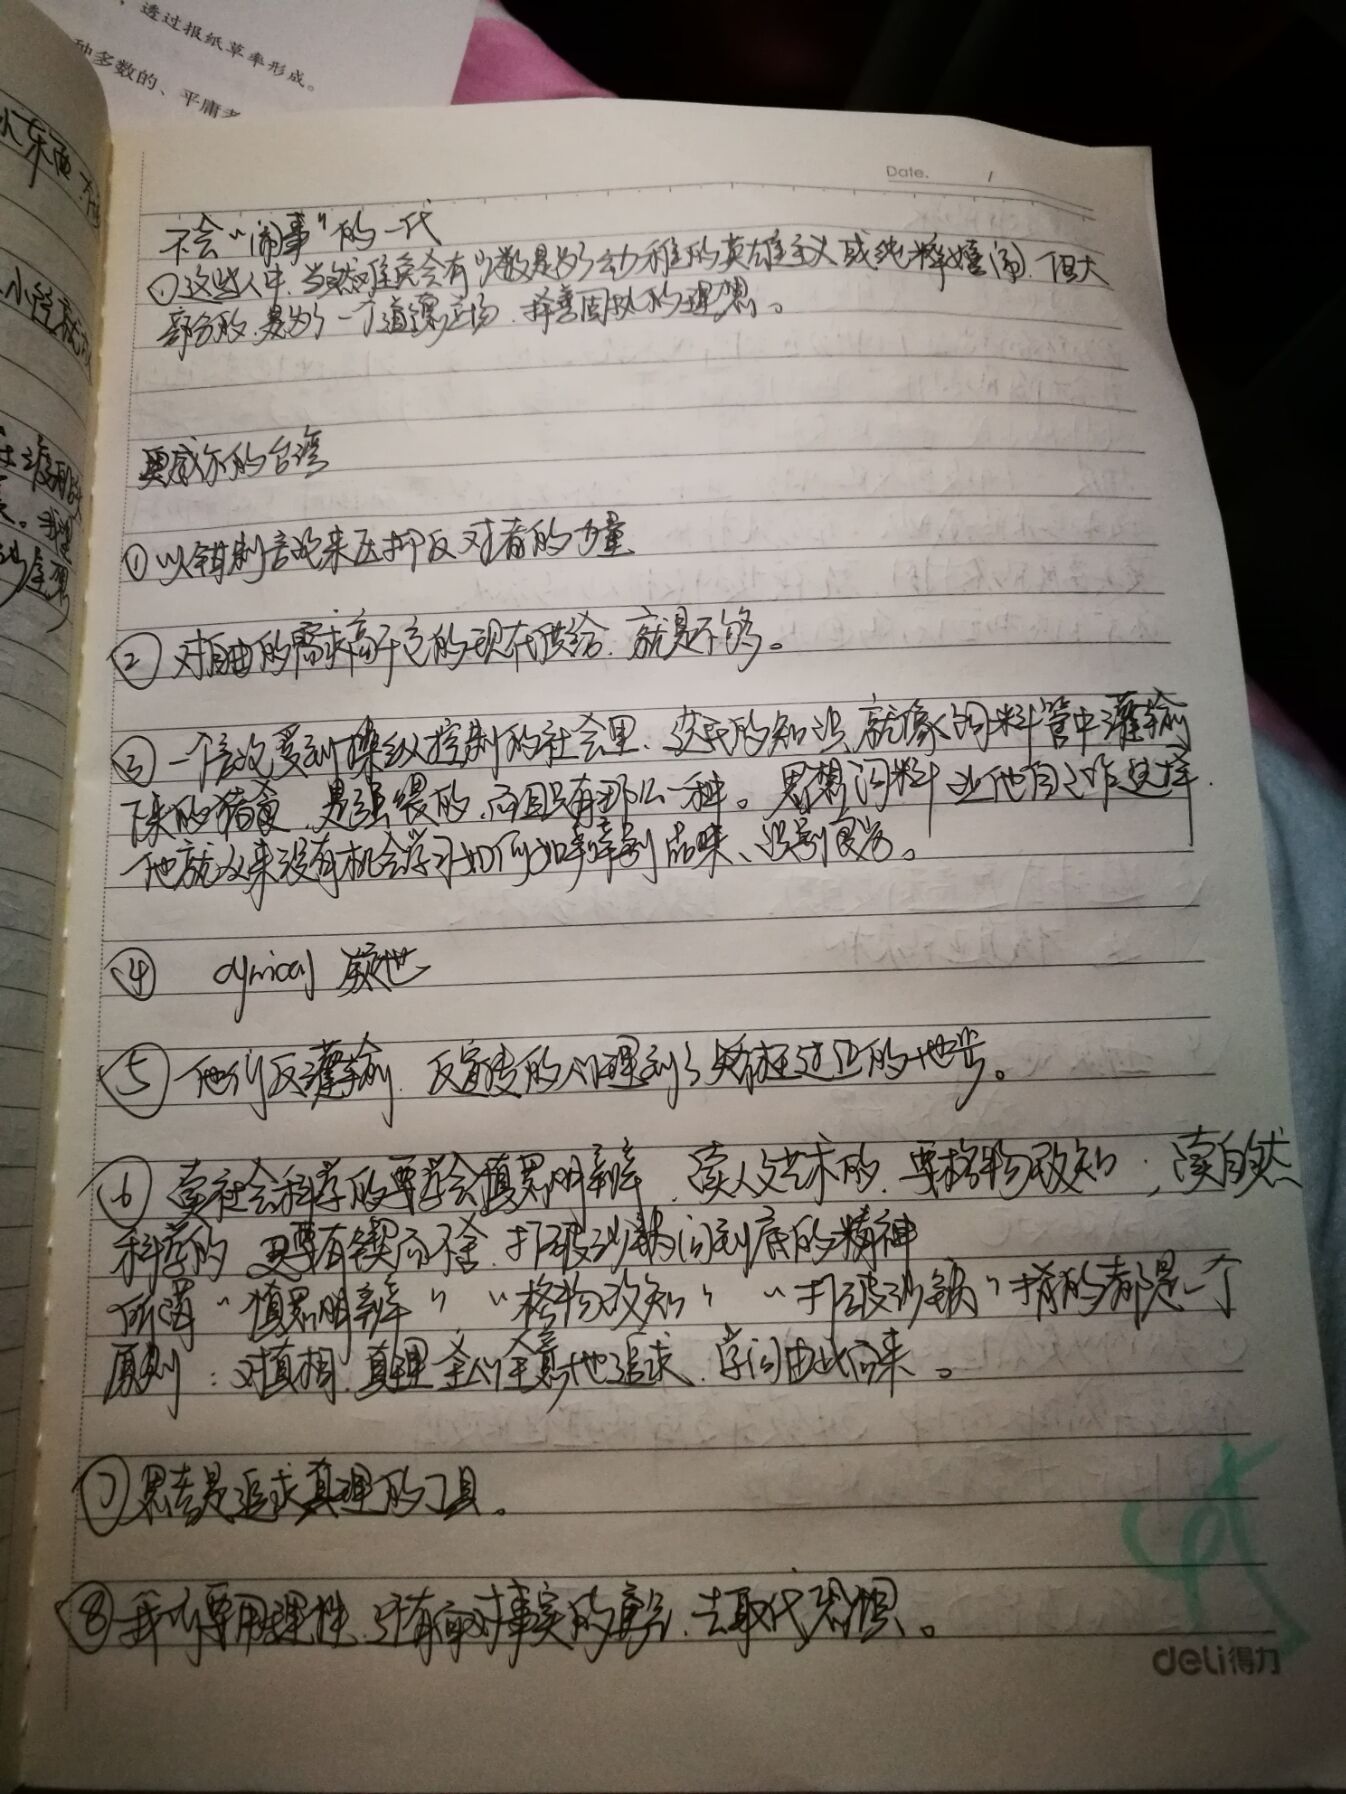 透过报纸草率形成。
种多数的、平庸
小东西
小径
Date.
不会“闹事”的一代
①这些人中,当然难免会有少数是为了幼稚的英雄主义或纯粹嬉闹,但大
部分的,是为了一个道德立场,择善固执的理想。
奥威尔的台湾
①以钳制言论来压抑反对者的力量
②对自由的需求高于它的现在供给,就是不够。
③一个言论受到操纵控制的社会里,获氏的知识就像饲料管中灌输
下来的猪食,是强喂的,而且只有那么一种。思想饲料 他自己作选择,
他就从来没有机会学习如何如 辨别品味、识别良劣。
④ cynical 颓世
⑤他们反灌输,反宣传的心理到了矫枉过正的地步。
⑥读社会科学的要学会慎思明辨,读人文艺术的,要格物致知;读自然
科学的 更要有锲而不舍,打破沙锅问到底的精神
所谓“慎思明辨”,“格物致知”“打破沙锅”指的都是一个
原则:对真相,真理全心全意地追求,学问由此而来。
⑦思考是追求真理的工具。
⑧我们要用理性,只有面对事实的 ,去取代恐惧。
deli得力